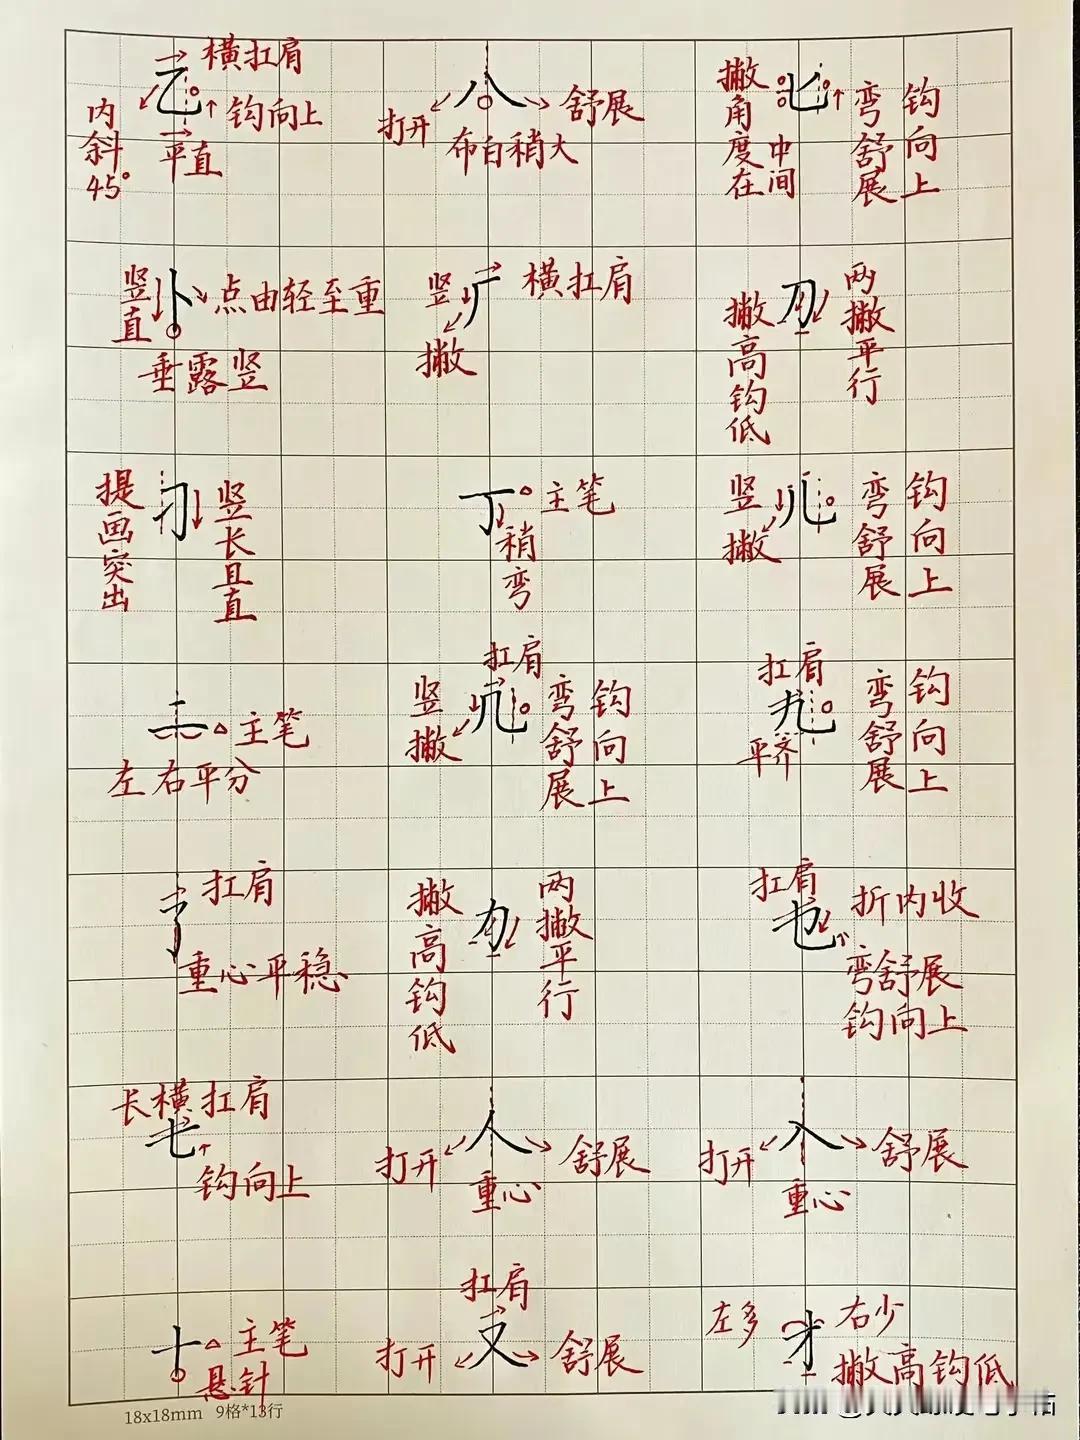 乙 横扛肩
内斜45°
钩向上
平直
八
打开
舒展
布白稍大
匕
撇角度在中间
弯舒展
钩向上
卜
竖直
点由轻至重
垂露竖
厂
竖撇
横扛肩
刀
撇高钩低
两撇平行
刁
提画突出
竖长且直
丁
主笔
稍弯
儿
竖撇
弯舒展
钩向上
二
主笔
左右平分
几
扛肩
竖撇
弯舒展
钩向上
九
扛肩
平齐
弯舒展
钩向上
了
扛肩
重心平稳
力
撇高钩低
两撇平行
也
扛肩
折内收
弯舒展
钩向上
七
长横扛肩
钩向上
人
打开
舒展
重心
入
打开
舒展
重心
十
主笔
悬针
又
扛肩
打开
舒展
才
左多
右少
撇高钩低
18x18mm 9格*13行